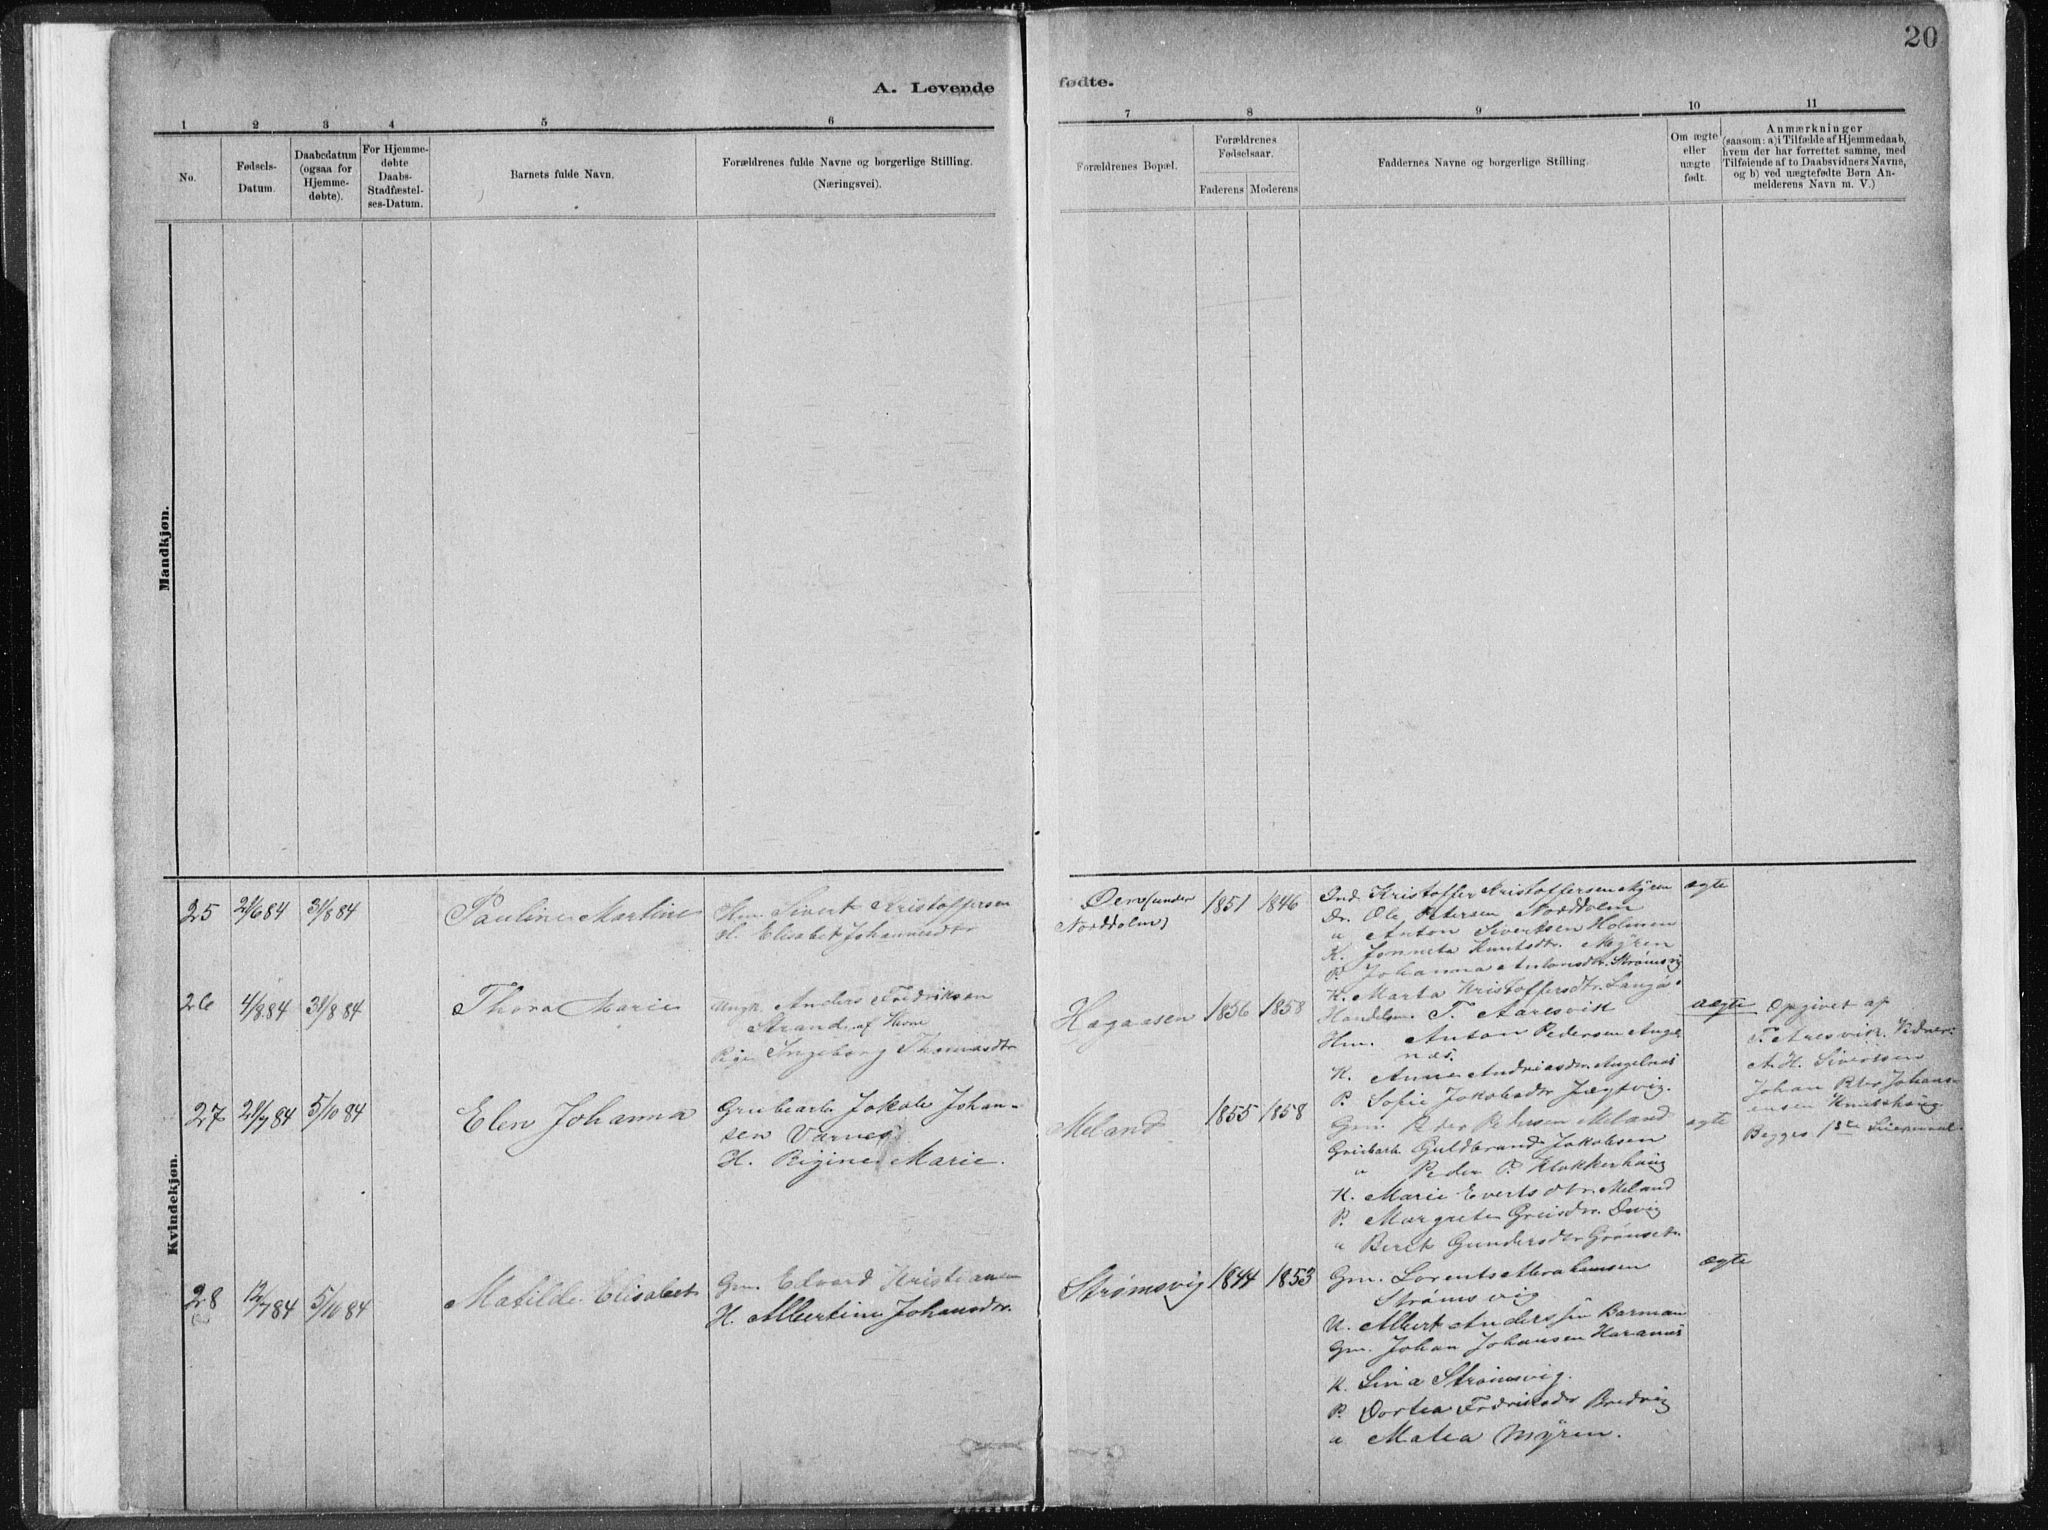 20
A. Levende fødte.
1 2 3 4 5 6 7 8 9 10 11
No.
Fødsels-
Datum.
Daabsdatum
(ogsaa for
Hjemme-
døbte).
For Hjemme-
døbte
Daabs-
Stadfæstel-
ses-Datum.
Barnets fulde Navn.
Forældrenes fulde Navne og borgerlige Stilling.
(Næringsvei).
Forældrenes Bopæl.
Forældrenes
Fødselsaar.
Faderens Moderens
Faddernes Navne og borgerlige Stilling.
Om ægte
eller
uægte
født.
Anmærkninger
(saasom: a) i Tilfælde af Hjemmedaab,
hvem der har forrettet samme, med
Tilføiende af to Daabsvidners Navne,
og b) ved uægtefødte Børn An-
melderens Navn m. V.)
Mandkjøn.
Kvindekjøn.
25 21/6 84 31/8 84
Pauline Martine
Hm. Sivert Kristoffersen
H. Elisabet Johannesdtr
Øen (under
Norddolm)
1851 1846
Ind. Kristoffer Kristoffersen
Dr. Ole Petersen Norddolm
" Anton Sivertsen Holmen
K. Jonneta Knutsdtr. Myren
P. Johanna Antonsdtr. Strømsvig
K. Marta Kristoffersdtr. Langø
ægte
26 4/8 84 31/8 84
Thora Marie
Ungk. Anders Fredriksen
Strand af
Pige Ingeborg Thomasdtr
Hagaasen
1856 1858
Handelsm. T. Aaresvik
Hm. Anton Pedersen Angel
næs.
K. Anne Andriasdtr. Angelnæs
P. Sofie Jakobsdtr Jægtvig.
uægte
Opgivet af
T. Aresvik. Vidner:
A. H. Sivertsen
Johan Johans-
ensen
Begges 1ste
27 21/7 84 5/10 84
Elen Johanna
Grubearb. Jakob Johan-
sen Varnes
H. Regine Marie.
Meland
1855 1858
Gm. Peder Pedersen Meland
Grubearb. Guldbrand Jakobsen
" Peder P. Klokkerhaug
K. Marie Evertsdtr. Meland
P. Margrete
" Berit Gundersdtr Grønset.
ægte
28 12/7 84 5/10 84
Matilde Elisabet
Gm. Edvard Kristiansen
H. Albertine Johansdtr.
Strømsvig
1844 1853
Gm. Lorents Abrahamsen
Strømsvig
U. Albert Anderssen Barman
Gm. Johan Johansen
K. Lina Strømsvig.
P. Dortea Fredriksdtr Bredvig
" Matea Myren.
ægte